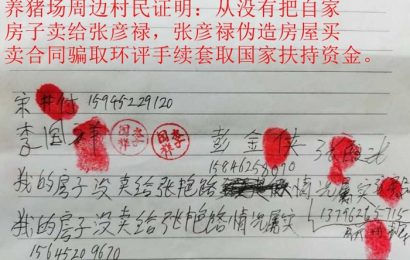 养猪场周边村民证明：从没有把自家
房子卖给张彦禄，张彦禄伪造房屋买
卖合同骗取环评手续套取国家扶持资金。
宋井付 15945229120
李国祥 李国祥 彭金侠
15846258090
我的房子没卖给张艳路 情况属实
我的房子没卖给张艳路情况属实 13796265715
15645209670